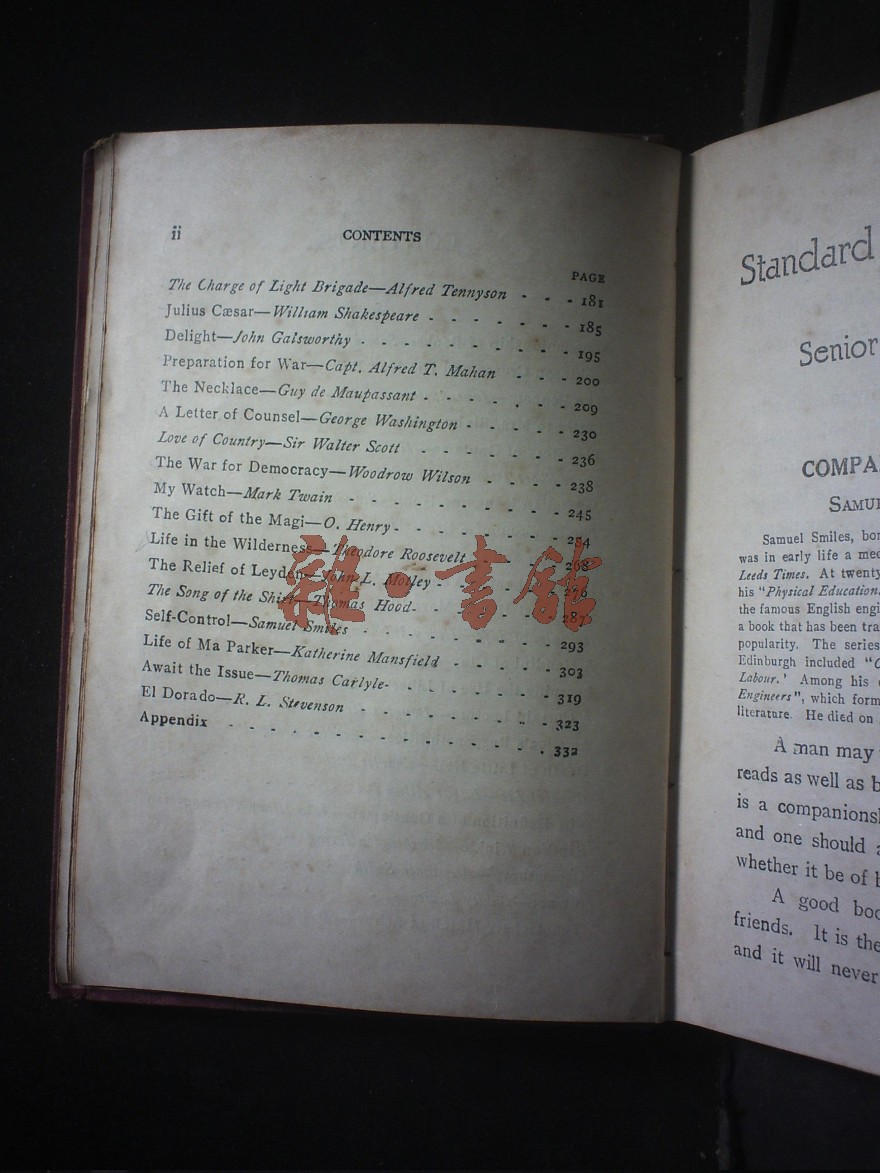 ii CONTENTS
PAGE
The Charge of Light Brigade—Alfred Tennyson - - - 181
Julius Cæsar—William Shakespeare - - - - - - - 185
Delight—John Galsworthy - - - - - - - - - 195
Preparation for War—Capt. Alfred T. Mahan - - - 200
The Necklace—Guy de Maupassant - - - - - - - 209
A Letter of Counsel—George Washington - - - - - 230
Love of Country—Sir Walter Scott - - - - - - - 236
The War for Democracy—Woodrow Wilson - - - - 238
My Watch—Mark Twain - - - - - - - - - 245
The Gift of the Magi—O. Henry - - - - - - - 254
Life in the Wilderness—Theodore Roosevelt - - - - 268
The Relief of Leyden—John L. Motley - - - - - - 276
The Song of the Shirt—Thomas Hood - - - - - - 287
Self-Control—Samuel Smiles - - - - - - - - 293
Life of Ma Parker—Katherine Mansfield - - - - - 303
Await the Issue—Thomas Carlyle - - - - - - - 319
El Dorado—R. L. Stevenson - - - - - - - - 323
Appendix - - - - - - - - - - - - 332
雜·書館
Standard
Senior
COMPA
SAMUE
Samuel Smiles, bor
was in early life a med
Leeds Times. At twenty
his "Physical Education
the famous English engi
a book that has been tra
popularity. The series
Edinburgh included "
Labour.' Among his
Engineers", which form
literature. He died on
A man may
reads as well as b
is a companionsh
and one should a
whether it be of b
A good boo
friends. It is the
and it will never